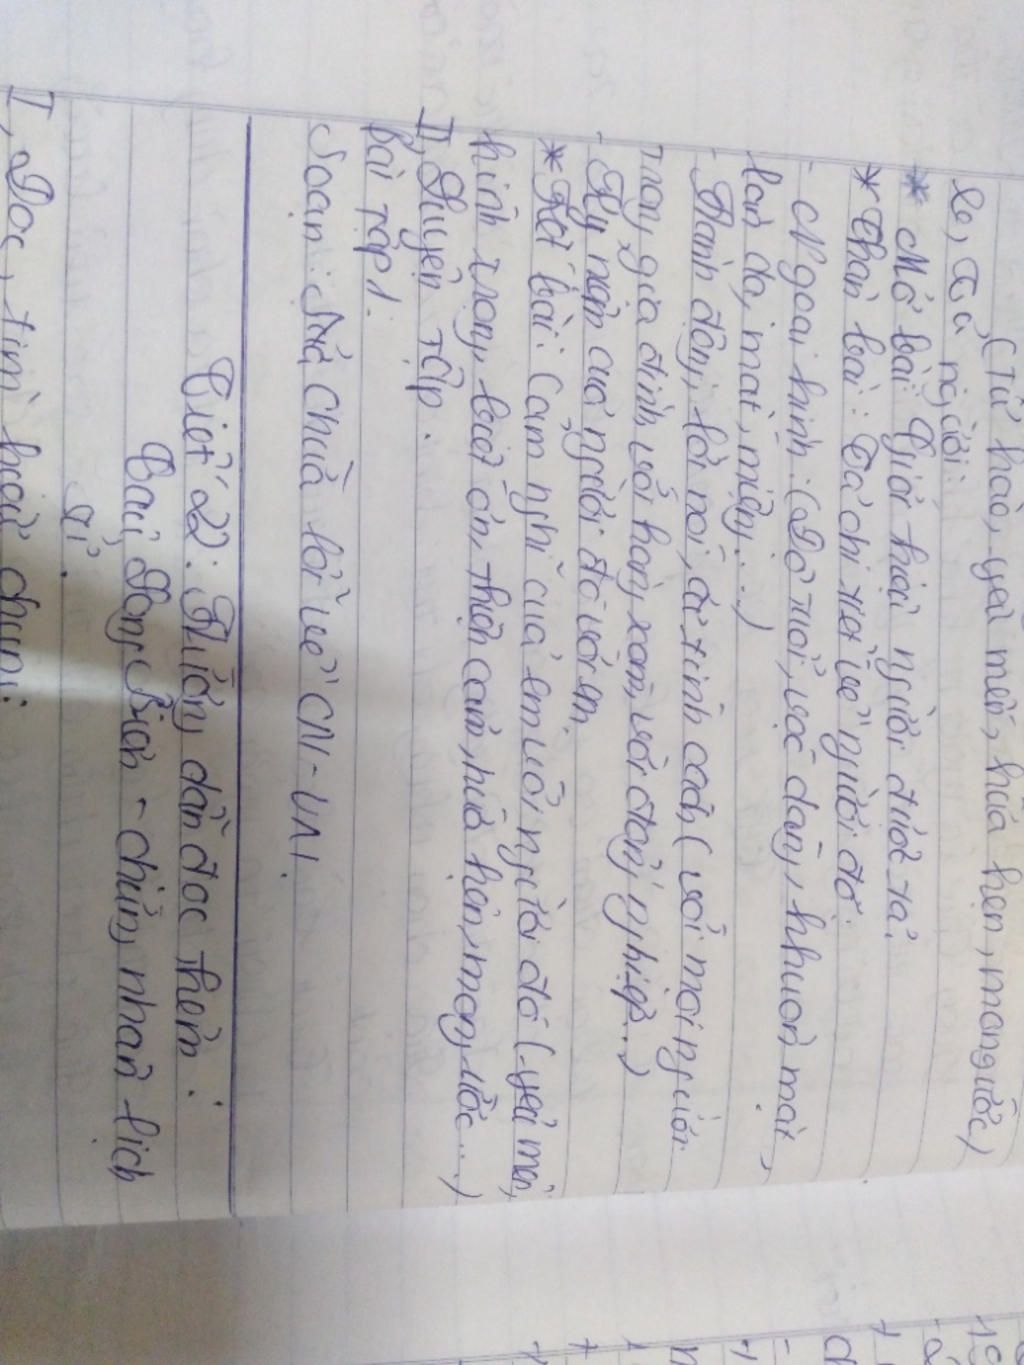 (Tự hào, yêu mến, hứa hẹn, mong ước)
b, Tả người:
* Mở bài: Giới thiệu người được tả.
* Thân bài: Tả chi tiết về người đó:
- Ngoại hình: (Độ tuổi, vóc dáng, khuôn mặt,
làn da, mái, miệng...)
- Hành động, lời nói, cá tính cách (với mọi người
trong gia đình, với hàng xóm, với đồng nghiệp...)
- Kỷ niệm của người đó với em.
* Kết bài: Cảm nghĩ của em với người đó (yêu mến,
kính trọng, biết ơn, thiện cảm, hứa hẹn, mong ước...)
II, Luyện tập.
Bài tập 1.
Soạn: Mẹ chữa lỗi về CN-VN.
Tiết 22: Hướng dẫn đọc thêm:
Cầu Long Biên - chứng nhân lịch
sử.
I, Đọc, tìm hiểu chung: